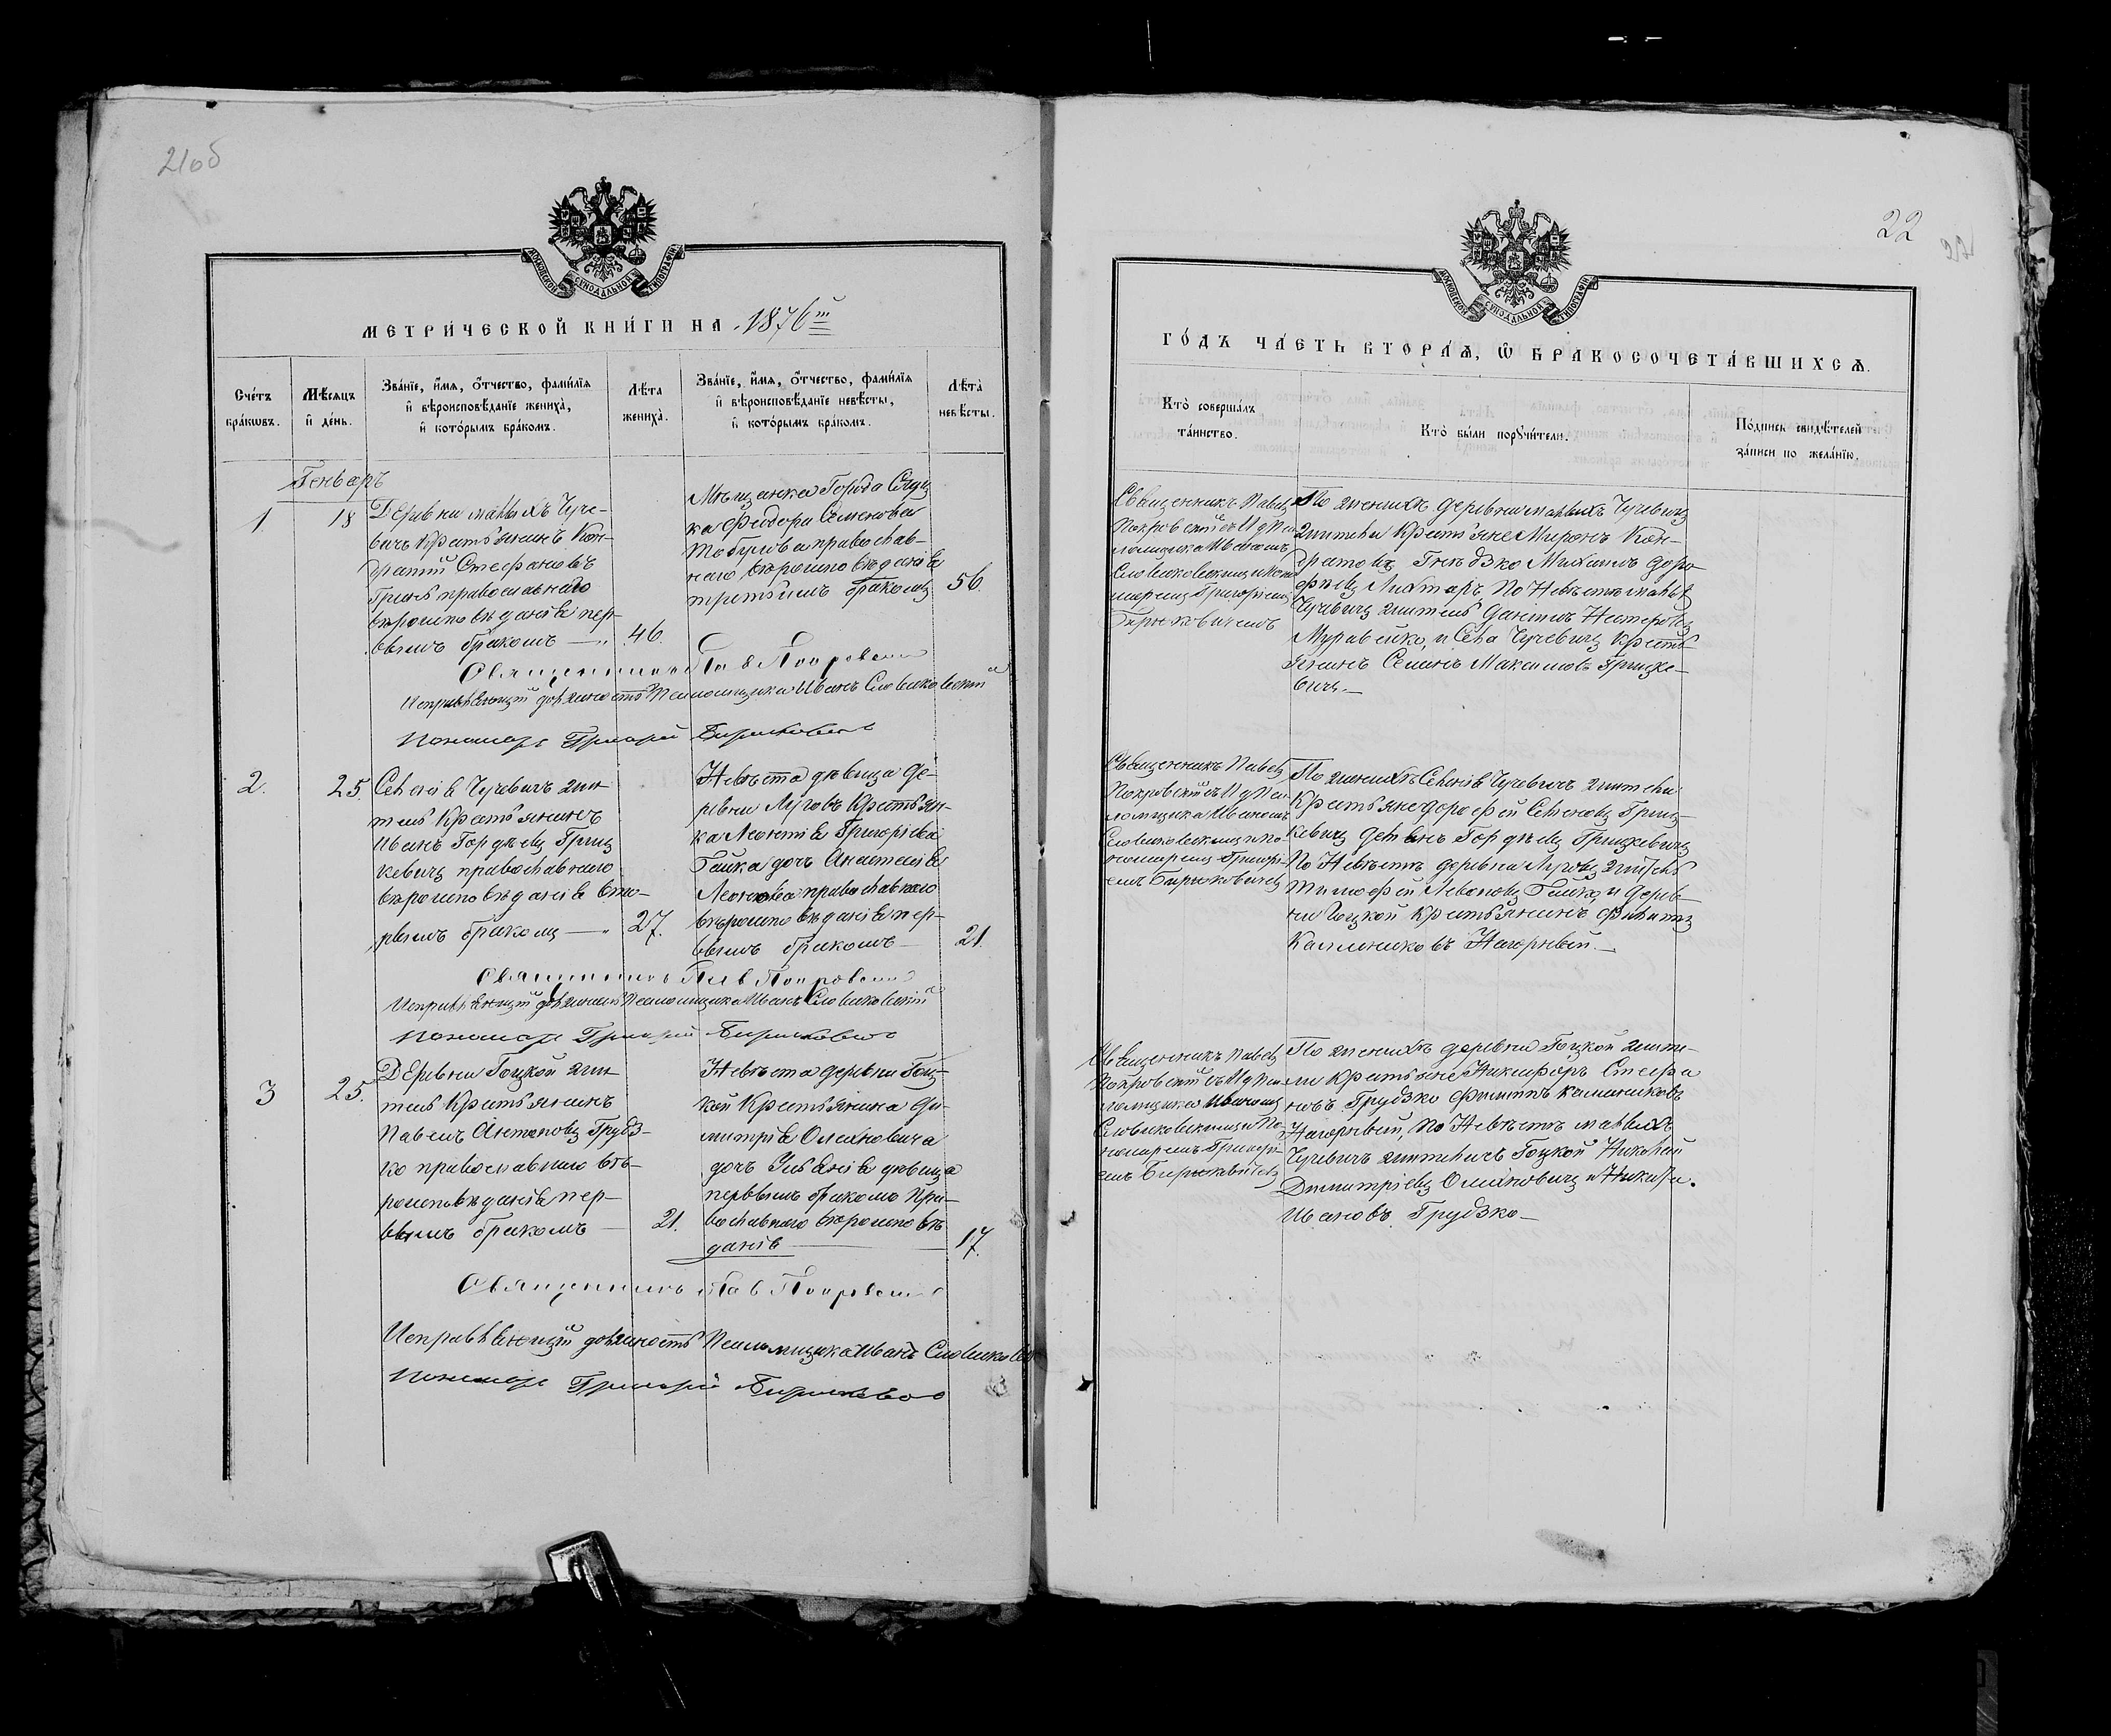 21об
МОСКОВСКОЙ СУНОДАЛЬНОЙ ТИПОГРАФІИ
МЕТРИ́ЧЕСКОЙ КНИ́ГИ НА 1876й
Сче́тъ бра́кωвъ.
Мѣ́сяцъ и҆ де́нь.
Зва́нїе, и҆́мя, ѻ҆́тчество, фами́лїя
и҆ вѣроисповѣ́данїе жениха̀,
и҆ кото́рымъ бра́комъ.
Лѣ́та жениха̀.
Зва́нїе, и҆́мя, ѻ҆́тчество, фами́лїя
и҆ вѣроисповѣ́данїе невѣ́сты,
и҆ кото́рымъ бра́комъ.
Лѣта̀ невѣ́сты.
Генварь
1.
18
Деревни малыхъ Чуче-
вичъ Крестьянинъ Кон-
дратій Стефановъ
православнаго
вѣроисповѣданія пер-
вымъ бракомъ
46.
Мѣщанка Города Слуц
ка Феодора Семенова
православ-
наго вѣроисповѣданія
третьимъ бракомъ
56.
Священникъ Пав Покровскій
Исправляющій должность Псаломщика Иванъ Словиковскій
Пономарь Григорій Бирюковичъ
2.
25.
Селенія Чучевичъ жи-
тель Крестьянинъ
Иванъ Гордѣевъ Гриц
кевичъ православнаго
вѣроисповѣданія вто-
рымъ бракомъ
27.
Невѣста дѣвица де-
ревни Луговъ Крестьян-
ка Леонтія Григоріева
Гайка дочь Анастасія
Леонтіева православнаго
вѣроисповѣданія пер-
вымъ бракомъ
21.
Священникъ Пав Покровскій
Исправляющій должность Псаломщика Иванъ Словиковскій
Пономарь Григорій Бирюковичъ
3
25.
Деревни Гоцкой жи
тель Крестьянинъ
Павелъ Антоновъ Грудз-
ко православнаго вѣ-
роисповѣданія пер-
вымъ бракомъ
21.
Невѣста деревни Гоц-
кой Крестьянина Ди-
митрія Олиховича
дочь Ульянія дѣвица
первымъ бракомъ пра-
вославнаго вѣроисповѣ
данія
17.
Священникъ Пав Покровскій
Исправляющій должность Псаломщика Иванъ Словиковскій
Пономарь Григорій Бирюковичъ
22
МОСКОВСКОЙ СУНОДАЛЬНОЙ ТИПОГРАФІИ
ГО́ДЪ ЧА́СТЬ ВТОРА́Ѧ, Ѡ҆ БРАКОСОЧЕТА́ВШИХСѦ.
Кто̀ соверша́лъ
та́инство.
Кто̀ бы́ли порꙋчи́тели.
По́дпись свидѣ́телей
за́писи по жела́нїю.
Священникъ Павелъ
Покровскій съ И д Пса
ломщика Иваномъ
Словиковскимъ и Поно
маремъ Григоріемъ
Бирюковичемъ
По женихѣ деревни малыхъ Чучевичъ
жители Крестьяне Миронъ Кон-
дратовъ Михаилъ Доро
феевъ Лихтаръ, По Невѣстѣ малыхъ
Чучевичъ житель Даніилъ Несторовъ
Муравейко, и Села Чучевичъ Кресть
янинъ Семенъ Максимовъ Грицке-
вичъ.
Священникъ Павелъ
Покровскій съ И д Пса
ломщика Иваномъ
Словиковскимъ и По-
номаремъ Григорі-
емъ Бирюковичемъ
По женихѣ Селенія Чучевичъ жители
Крестьяне Дорофей Семеновъ Гриц-
кевичъ Демьянъ Гордѣевъ Грицкевичъ
По Невѣстѣ деревни Луговъ житель
Тимофей Левоновъ Гайко, и дерев-
ни Гоцкой Крестьянинъ Филиппъ
Калиниковъ Нагорный.
Священникъ Павелъ
Покровскій съ И д Пса
ломщика Иваномъ
Словиковскимъ и По-
номаремъ Григорі-
емъ Бирюковичемъ
По женихѣ деревни Гоцкой жите-
ли Крестьяне Никифоръ Стефа
новъ Грудзко Филиппъ Калиниковъ
Нагорный, по Невѣстѣ малыхъ
Чучевичъ Гоцкой Николай
Димитріевъ Олиховичъ и Никита
Ивановъ Грудзко